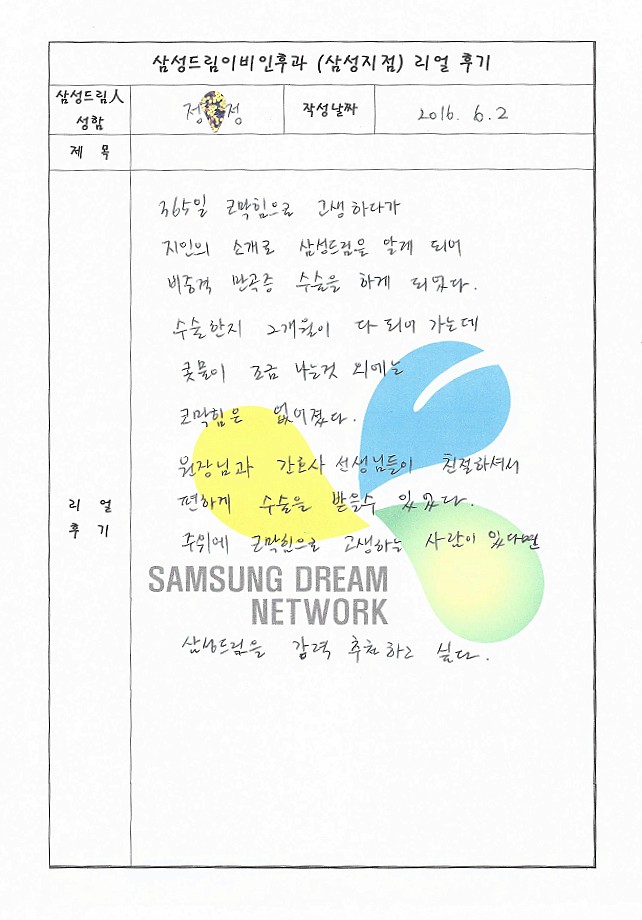 삼성드림이비인후과 (삼성지점) 리얼 후기
삼성드림人
성함
정 정
작성날짜
2016. 6. 2
제 목
리 얼
후 기
365일 코막힘으로 고생하다가
지인의 소개로 삼성드림을 알게 되어
비중격 만곡증 수술을 하게 되었다.
수술한지 2개월이 다 되어 가는데
콧물이 조금 나는것 외에는
코막힘은 없어졌다.
원장님과 간호사 선생님들이 친절하셔서
편하게 수술을 받을수 있었다.
주위에 코막힘으로 고생하는 사람이 있다면
SAMSUNG DREAM
NETWORK
삼성드림을 강력 추천하고 싶다.